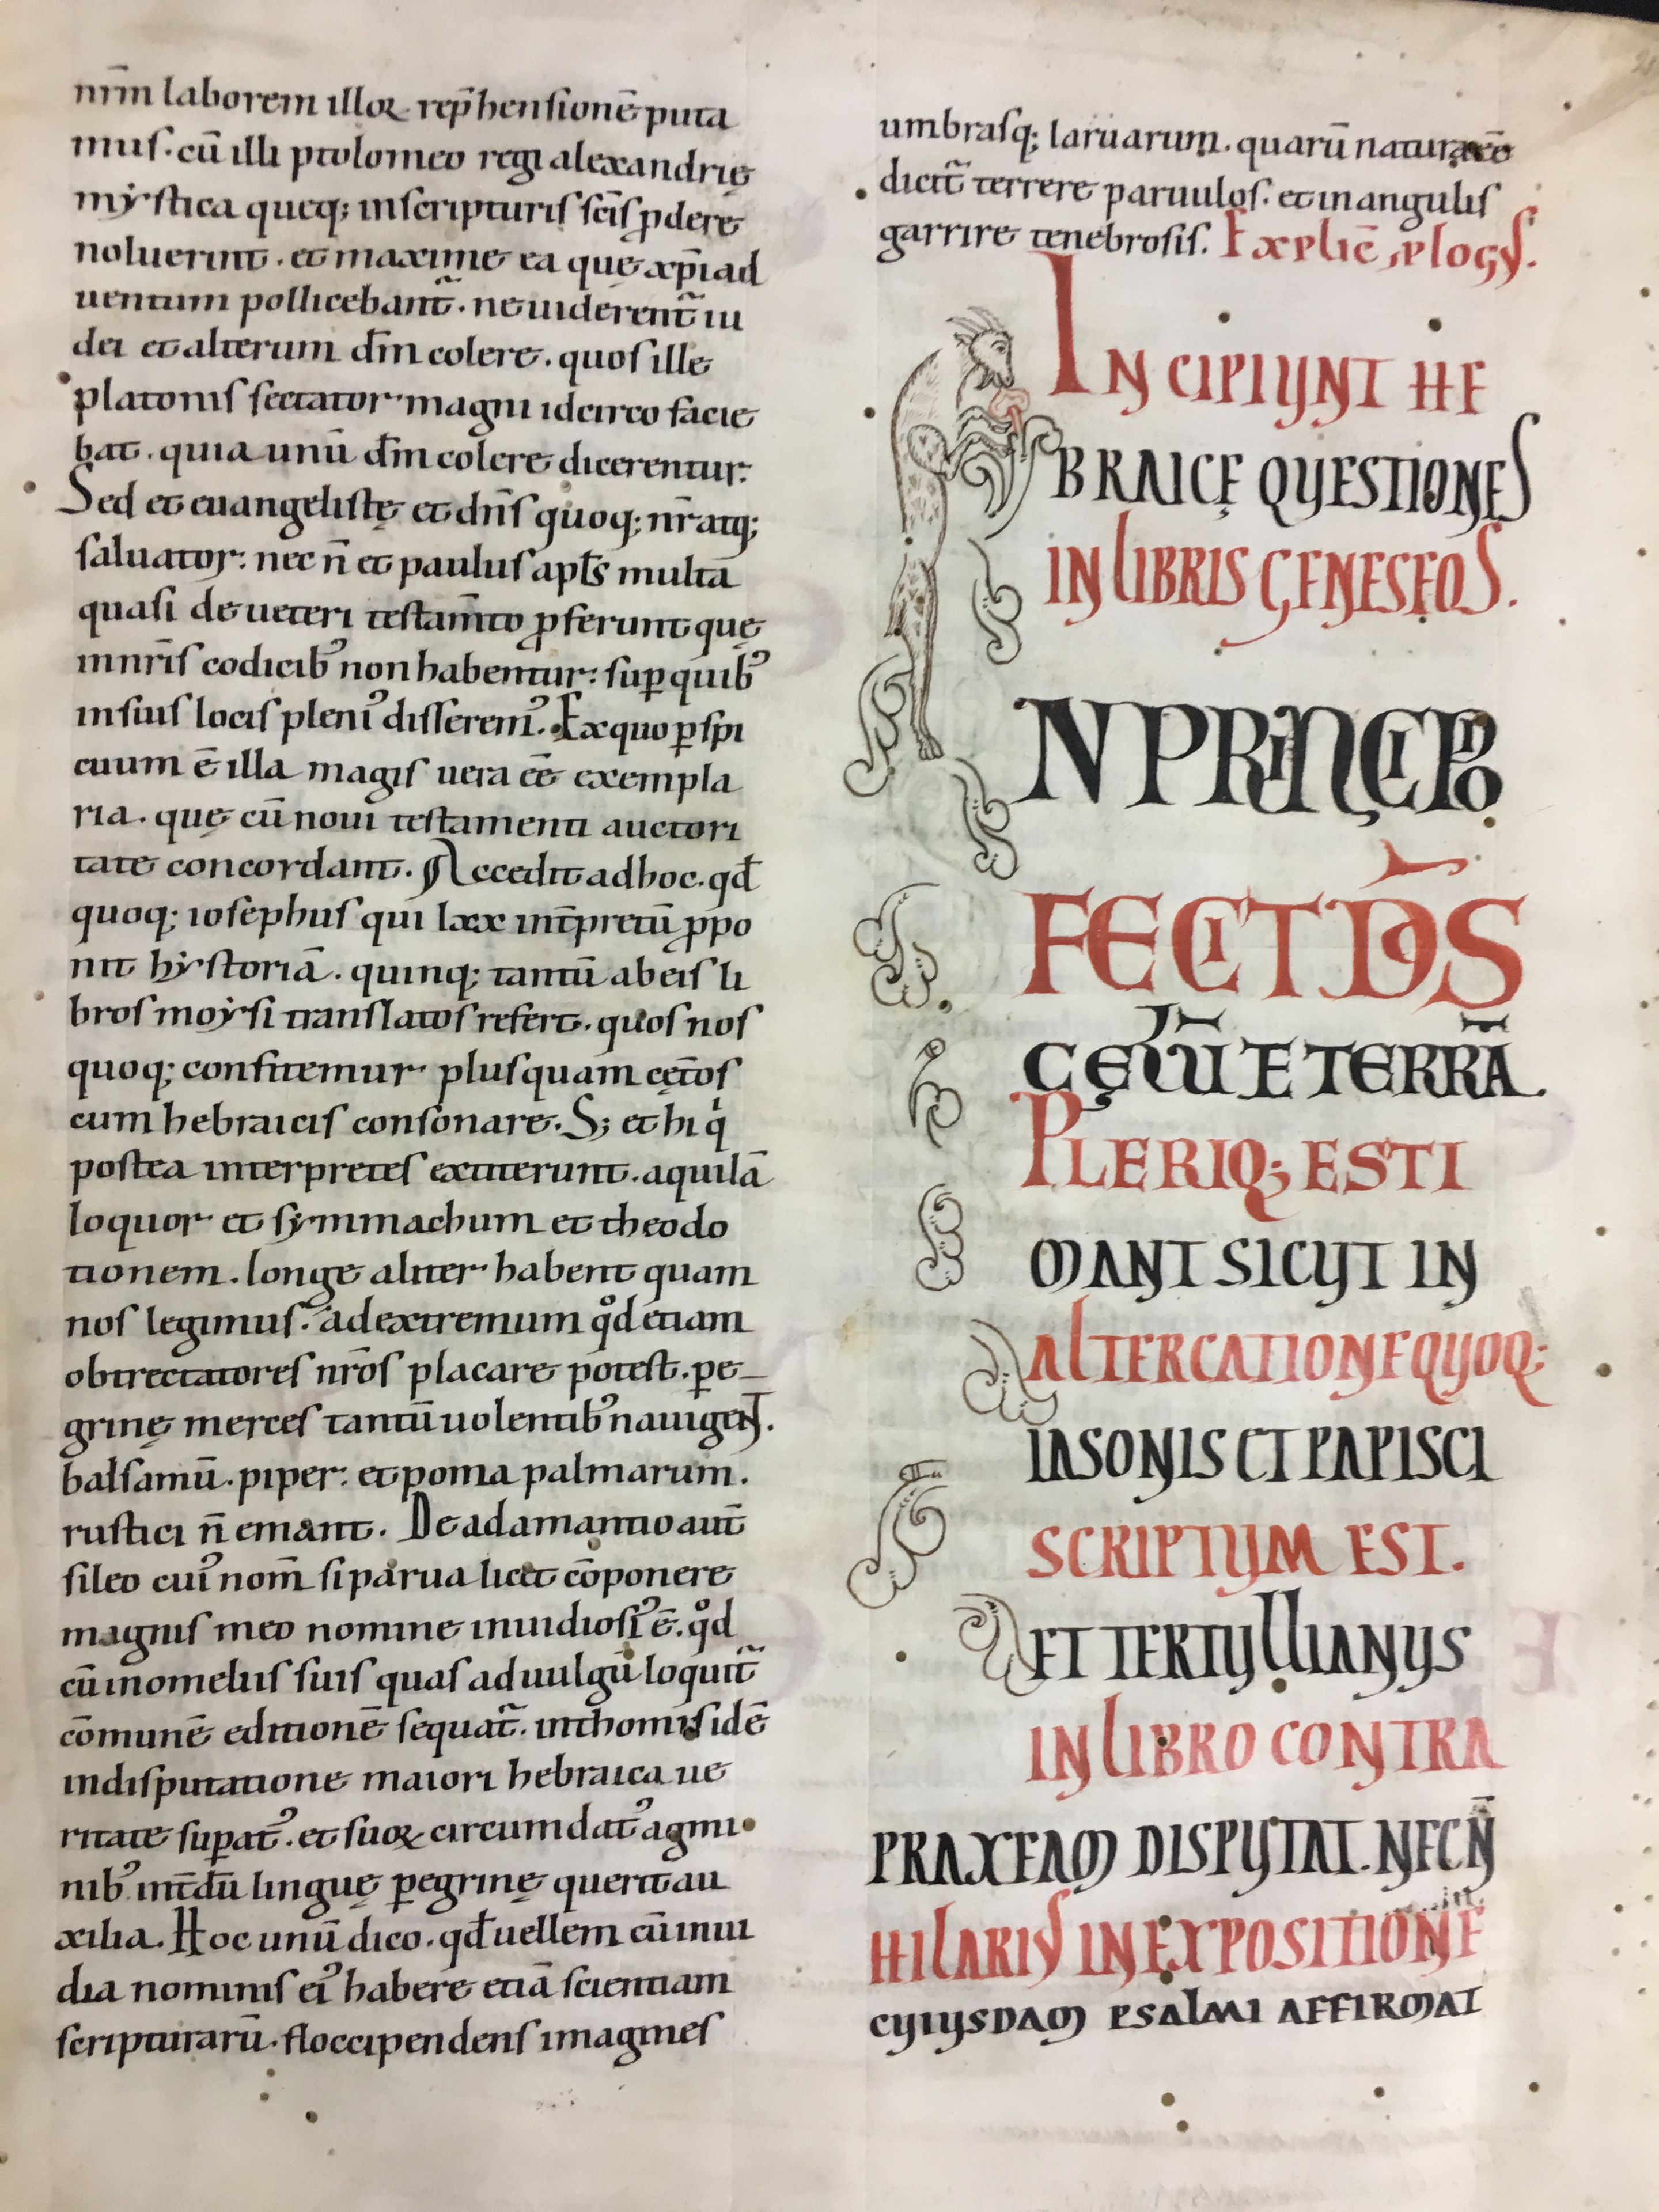 nr̄m laborem illoꝝ rep̄hensionē puta
mus. cū illi ptolomeo regi alexandrię
mẏstica queq; inscripturis scīs ꝓdere
noluerint. et maxime ea quę xp̄i ad
uentum pollicebant̃. ne uiderent̃ iu
dei et alterum dm̄ colere. quos ille
platonis sectator magni idcirco facie
bat. quia unū dm̄ colere dicerentur.
Sed et euangelistę et dn̄s quoq; nr̄ atq;
saluator: nec n̄ et paulus apl̄s multa
quasi de ueteri testam̄to ꝓferunt quę
innr̄is codicibꝰ non habentur: suꝑ quibꝰ
insuis locis pleniꝰ disseremꝰ. Ex quo ꝑspi
cuum ē illa magis uera eē exempla
ria. quę cū noui testamenti auctori
tate concordant. Accedit adhoc. qd̄
quoq; iosephus qui lxx int̄pretū ꝓpo
nit hẏstoriā. quinq; tantū ab eis li
bros moẏsi translatos refert. quos nos
quoq; confitemur plusquam cęt̄os
cum hebraicis consonare. S; et hi qͥ
postea interpretes extiterunt. aquilā
loquor et sẏmmachum et theodo
tionem. longe aliter habent quam
nos legimus. ad extremum qͦd etiam
obtrectatores nr̄os placare potest. ꝑe
grinę merces tantū uolentibꝰ nauigent.
balsamū. piper: et poma palmarum.
rustici n̄ emant. De adamantio aut̄
sileo cuiꝰ nom̄ si parua licet cōponere
magnis meo nomine inuidiosiꝰ ē. qͦd
cū inomeliis suis quas ad uulgū loquit̃
cōmunē editionē sequat̃. inthomis idē
indisputatione maiori hebraica ue
ritate suꝑatꝰ. et suoꝝ circumdatꝰ agmi
nibꝰ int̄dū linguę ꝑegrinę querit au
xilia. Hoc unū dico. qd̄ uellem cū inui
dia nominis eiꝰ habere etiā scientiam
scripturarū. floccipendens imagines
umbrasq; laruarum. quarū natura eē
dicit̃ terrere paruulos. et in angulis
garrire tenebrosis. Explic̄ ꝓlogus.
INCIPIUNT HE
BRAICĘ QUESTIONES
IN LIBRIS GENESEOS.
N PRINCIPIO
FECIT DS̄
CĘLŪ ET TERRĀ.
PLERIQ; ESTI
MANT SICUT IN
ALTERCATIONE QUOQ;
IASONIS ET PAPISCI
SCRIPTUM EST.
ET TERTULLIANUS
IN LIBRO CONTRA
PRAXEAM DISPUTAT. NEC N̄
HILARIUS IN EXPOSITIONE
CUIUSDAM PSALMI AFFIRMAT